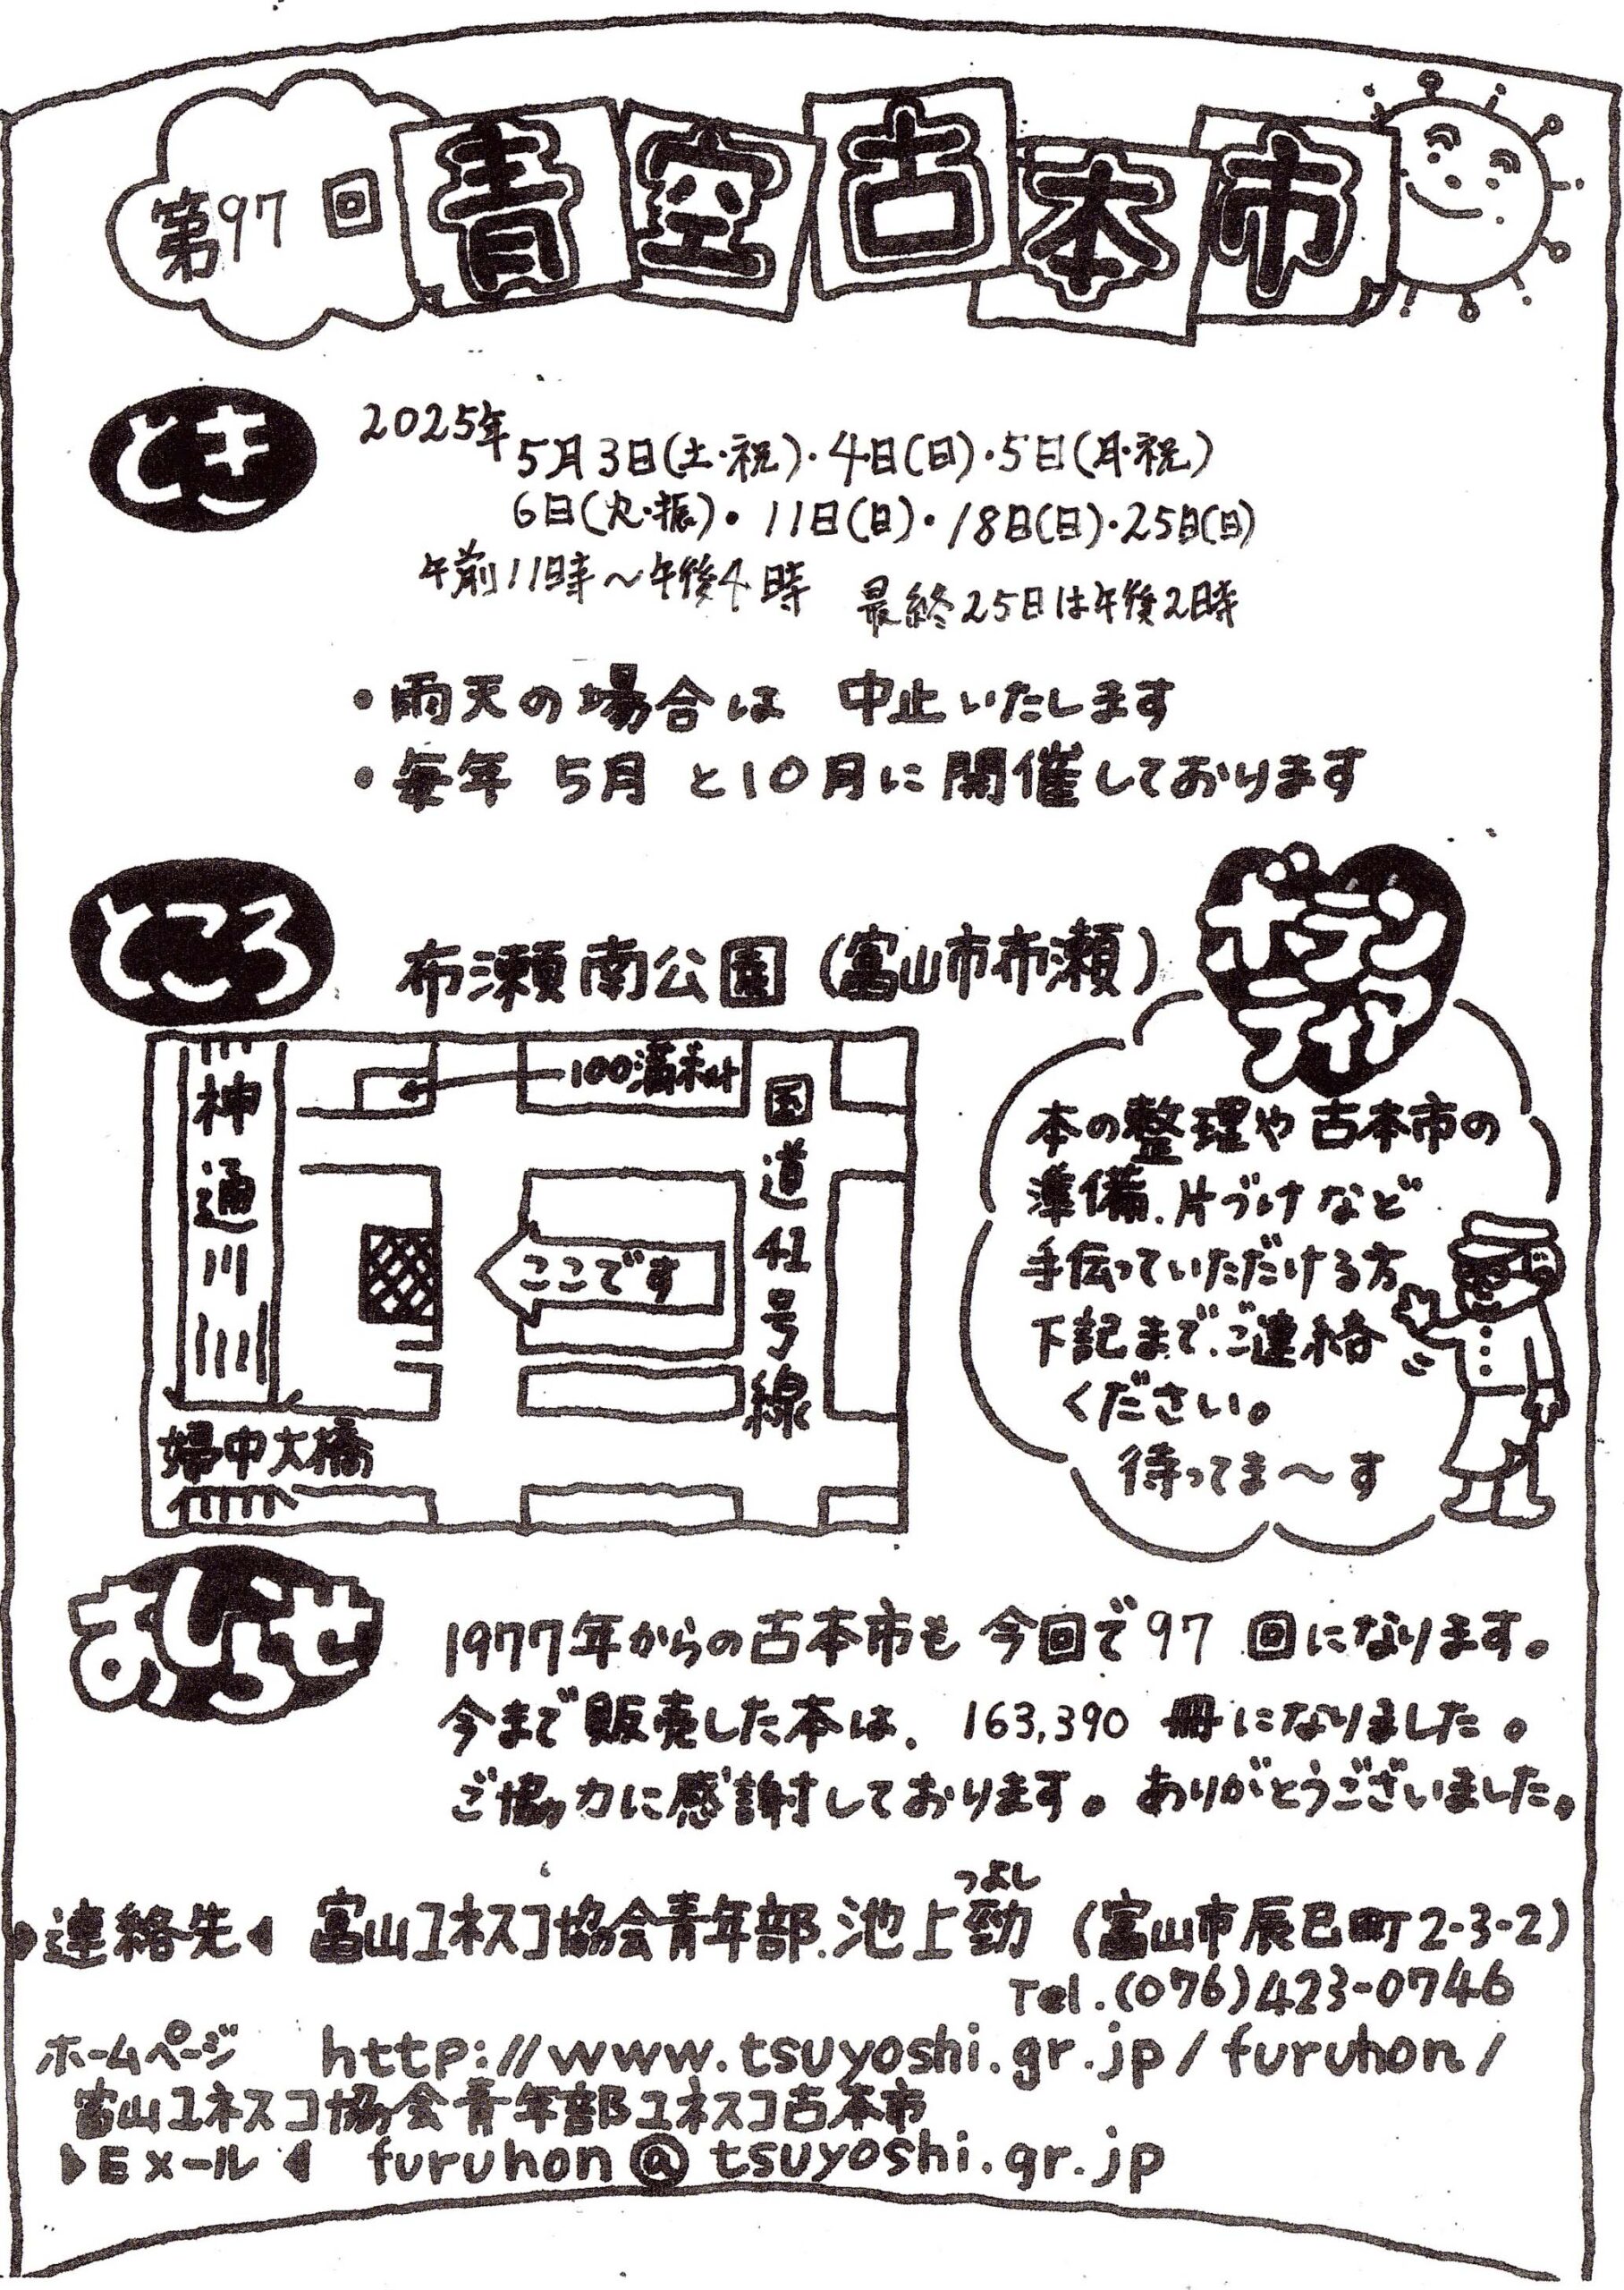 第97回 青空古本市
とき
2025年
5月3日(土・祝)・4日(日)・5日(月・祝)
6日(火・振)・11日(日)・18日(日)・25日(日)
午前11時～午後4時 最終25日は午後2時
・雨天の場合は 中止いたします
・毎年 5月 と10月に開催しております
ところ
布瀬南公園(富山市布瀬)
100満ボルト
神通川
国道41号線
ここです
婦中大橋
ボランティア
本の整理や古本市の
準備、片づけなど
手伝っていただける方
下記まで、ご連絡
ください。
待ってま～す
おしらせ
1977年からの古本市も 今回で97 回になります。
今まで販売した本は、163,390 冊になりました。
ご協力に感謝しております。ありがとうございました。
つよし
▶連絡先◀ 富山ユネスコ協会青年部、池上勁 (富山市辰巳町2-3-2)
Tel.(076)423-0746
ホームページ http://www.tsuyoshi.gr.jp/furuhon/
富山ユネスコ協会青年部ユネスコ古本市
▶Eメール◀ furuhon@tsuyoshi.gr.jp